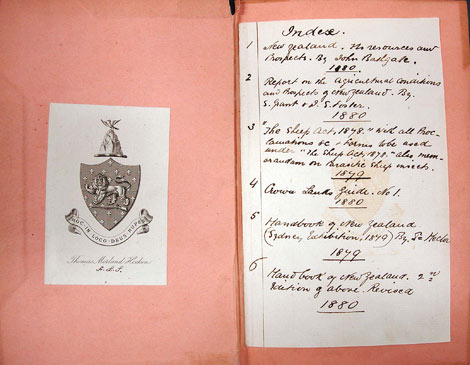 HOC IN LOCO DEUS RUPES
Thomas Morland Hocken
Index.
1 New Zealand. Its resources and
Prospects. By John Bathgate.
1880
2 Report on the Agricultural Conditions
and Prospects of New Zealand. By
S. Grant & J. S. Foster.
1880
3 "The Sheep Act, 1878." with all Proc-
lamations &c & Forms to be used
under "The Sheep Act, 1878." also mem-
orandum on Parasitic Sheep insects.
1879
4 Crown Lands Guide. No 1.
1880
5 Handbook of New Zealand
(Sydney Exhibition, 1879) By
1879
6 Handbook of New Zealand. 2nd
Edition of above. Revised
1880